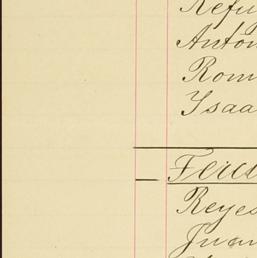 Refu
Anton
Rom
Isaa
Reyes
Juan